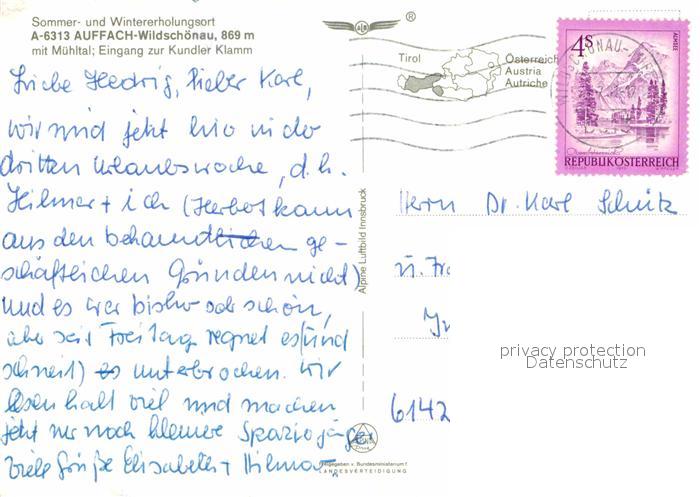 Sommer- und Wintererholungsort
A-6313 AUFFACH-Wildschönau, 869 m
mit Mühltal; Eingang zur Kundler Klamm
Liebe Hedwig, lieber Karl,
wir sind jetzt hier in der
dritten Urlaubswoche, d.h.
Hilmar + ich (Herbert kann
aus den behandlichen ge-
schäftlichen Gründen nicht)
und es war bisher sehr schön,
aber seit Freitag regnet es (und
schneit) es unterbrochen. Wir
lesen halt viel und machen
jetzt nur noch kleinere Spaziergänge.
Viele Grüße Elisabeth + Hilmar
Alpine Luftbild Innsbruck
Tirol
Österreich
Austria
Autriche
4S
ALMSEE
REPUBLIK ÖSTERREICH
Herrn Dr. Karl Schütz
u. Fr
6142
privacy protection
Datenschutz
freigegeben v. Bundesministerium f.
LANDESVERTEIDIGUNG